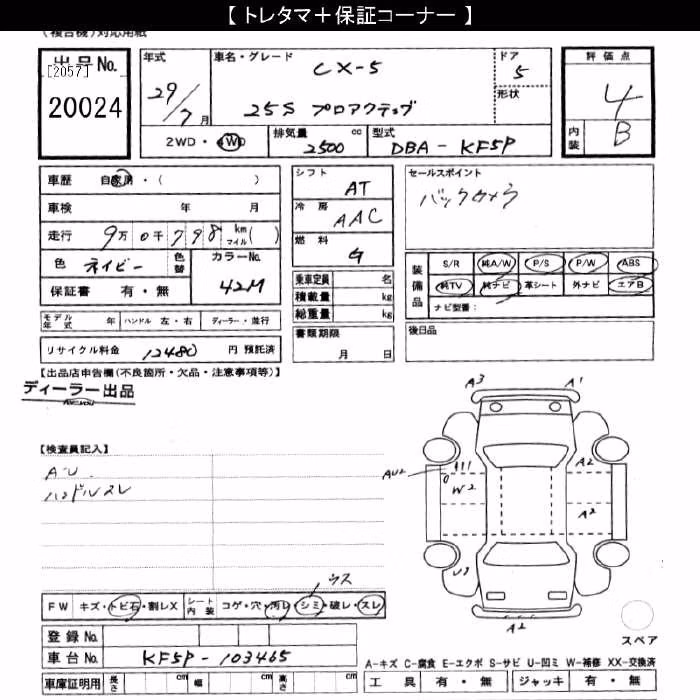 【 トレタマ＋保証コーナー 】
(複合機)対応用紙
出品No.
[2057]
20024
年式
29/7月
車名・グレード
CX-5
25S プロアクティブ
ドア
5
形状
評価点
4
内装
B
2WD・4WD
排気量
2500
cc
型式
DBA-KF5P
車歴 自家用・( )
車検 年 月
走行 9万0千798 km マイル( )
色 ネイビー 色替
カラーNo.
42M
保証書 有・無
シフト
AT
冷房
AAC
燃料
G
乗車定員 名
積載量 kg
総重量 kg
書類期限
月 日
セールスポイント
バックカメラ
装備品
S/R 純A/W P/S P/W ABS
純TV 純ナビ 革シート 外ナビ エアB
ナビ型番：
後日品
モデル年式 年 ハンドル 左・右 ディーラー・並行
リサイクル料金 12480 円 預託済
【出品店申告欄(不良箇所・欠品・注意事項等)】
ディーラー出品
【検査員記入】
A・U
ハンドルスレ
A3 A1
AU2
W2
A2
A2
U3
A2
スペア
ウス
FW キズ・トビ石・割レX
シート内装 コゲ・穴・汚レ・シミ・破レ・スレ
登録No.
車台No. KF5P-103465
車庫証明用 長さ cm 幅 cm 高さ cm
A-キズ C-腐食 E-エクボ S-サビ U-凹ミ W-補修 XX-交換済
工具 有・無 ジャッキ 有・無